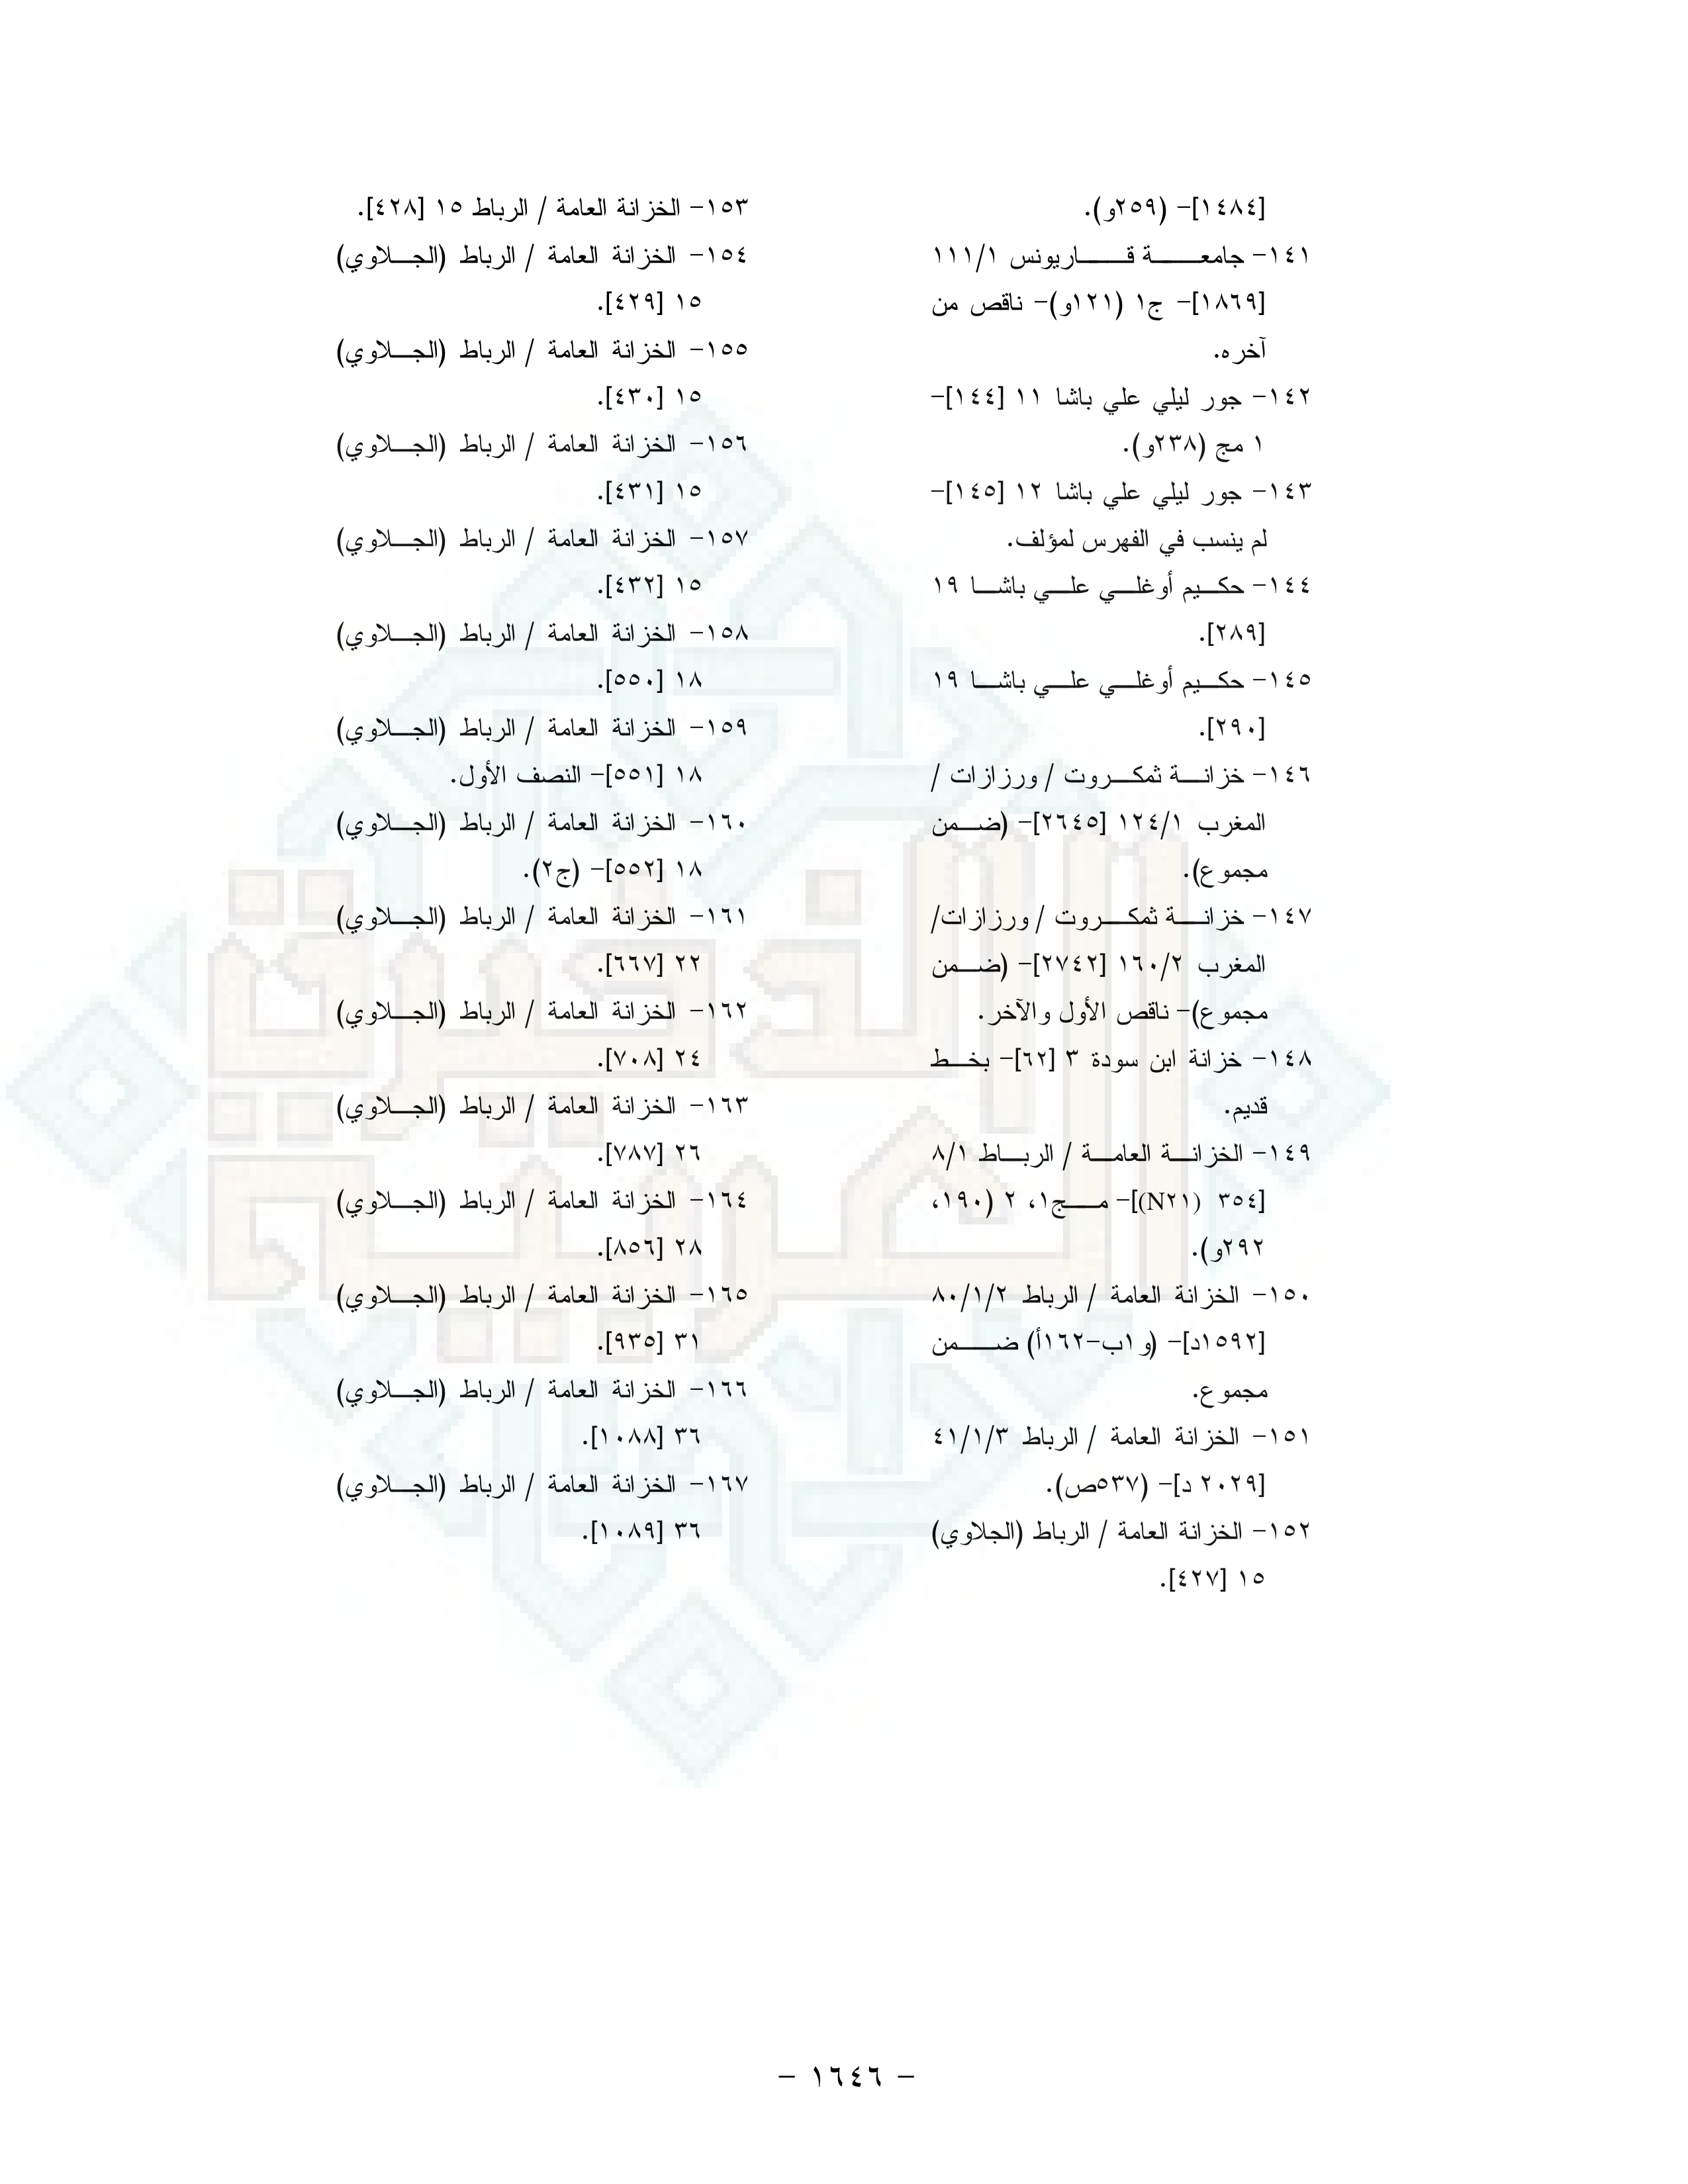 [١٤٨٤]- (٢٥٩و).
١٤١- جامعة قاريونس ١١١/١
[١٨٦٩]- ج١ (١٢١و)- ناقص من
آخره.
١٤٢- جور ليلي علي باشا ١١ [١٤٤]-
١ مج (٢٣٨و).
١٤٣- جور ليلي علي باشا ١٢ [١٤٥]-
لم ينسب في الفهرس لمؤلف.
١٤٤- حكيم أوغلي علي باشا ١٩
[٢٨٩].
١٤٥- حكيم أوغلي علي باشا ١٩
[٢٩٠].
١٤٦- خزانة ثمكروت / ورزازات /
المغرب ١٢٤/١ [٢٦٤٥]- (ضمن
مجموع).
١٤٧- خزانة ثمكروت / ورزازات/
المغرب ١٦٠/٢ [٢٧٤٢]- (ضمن
مجموع)- ناقص الأول والآخر.
١٤٨- خزانة ابن سودة ٣ [٦٢]- بخط
قديم.
١٤٩- الخزانة العامة / الرباط ٨/١
[٣٥٤ (N٢١)]- مج١، ٢ (١٩٠،
٢٩٢و).
١٥٠- الخزانة العامة / الرباط ٨٠/١/٢
[١٥٩٢د]- (و١ب-١٦٢أ) ضمن
مجموع.
١٥١- الخزانة العامة / الرباط ٤١/١/٣
[٢٠٢٩ د]- (٥٣٧ص).
١٥٢- الخزانة العامة / الرباط (الجلاوي)
١٥ [٤٢٧].
١٥٣- الخزانة العامة / الرباط ١٥ [٤٢٨].
١٥٤- الخزانة العامة / الرباط (الجلاوي)
١٥ [٤٢٩].
١٥٥- الخزانة العامة / الرباط (الجلاوي)
١٥ [٤٣٠].
١٥٦- الخزانة العامة / الرباط (الجلاوي)
١٥ [٤٣١].
١٥٧- الخزانة العامة / الرباط (الجلاوي)
١٥ [٤٣٢].
١٥٨- الخزانة العامة / الرباط (الجلاوي)
١٨ [٥٥٠].
١٥٩- الخزانة العامة / الرباط (الجلاوي)
١٨ [٥٥١]- النصف الأول.
١٦٠- الخزانة العامة / الرباط (الجلاوي)
١٨ [٥٥٢]- (ج٢).
١٦١- الخزانة العامة / الرباط (الجلاوي)
٢٢ [٦٦٧].
١٦٢- الخزانة العامة / الرباط (الجلاوي)
٢٤ [٧٠٨].
١٦٣- الخزانة العامة / الرباط (الجلاوي)
٢٦ [٧٨٧].
١٦٤- الخزانة العامة / الرباط (الجلاوي)
٢٨ [٨٥٦].
١٦٥- الخزانة العامة / الرباط (الجلاوي)
٣١ [٩٣٥].
١٦٦- الخزانة العامة / الرباط (الجلاوي)
٣٦ [١٠٨٨].
١٦٧- الخزانة العامة / الرباط (الجلاوي)
٣٦ [١٠٨٩].
الذخيرة
العربية
- ١٦٤٦ -